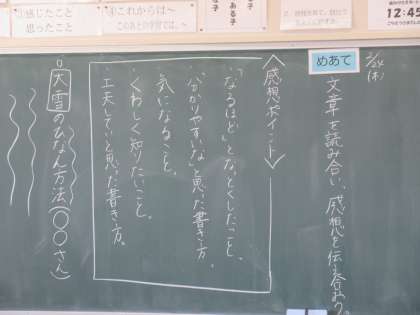 めあて
2/24
(木)
文章を読み合い、感想を伝え合おう。
<感想ポイント>
・「なるほど」となっとくしたこと。
・「分かりやすいな」と思った書き方。
・気になること。
・くわしく知りたいこと。
・工夫していると思った書き方。
大雪のひなん方法(〇〇さん)
①感じたこと
思ったこと
④これからは〜
12:45